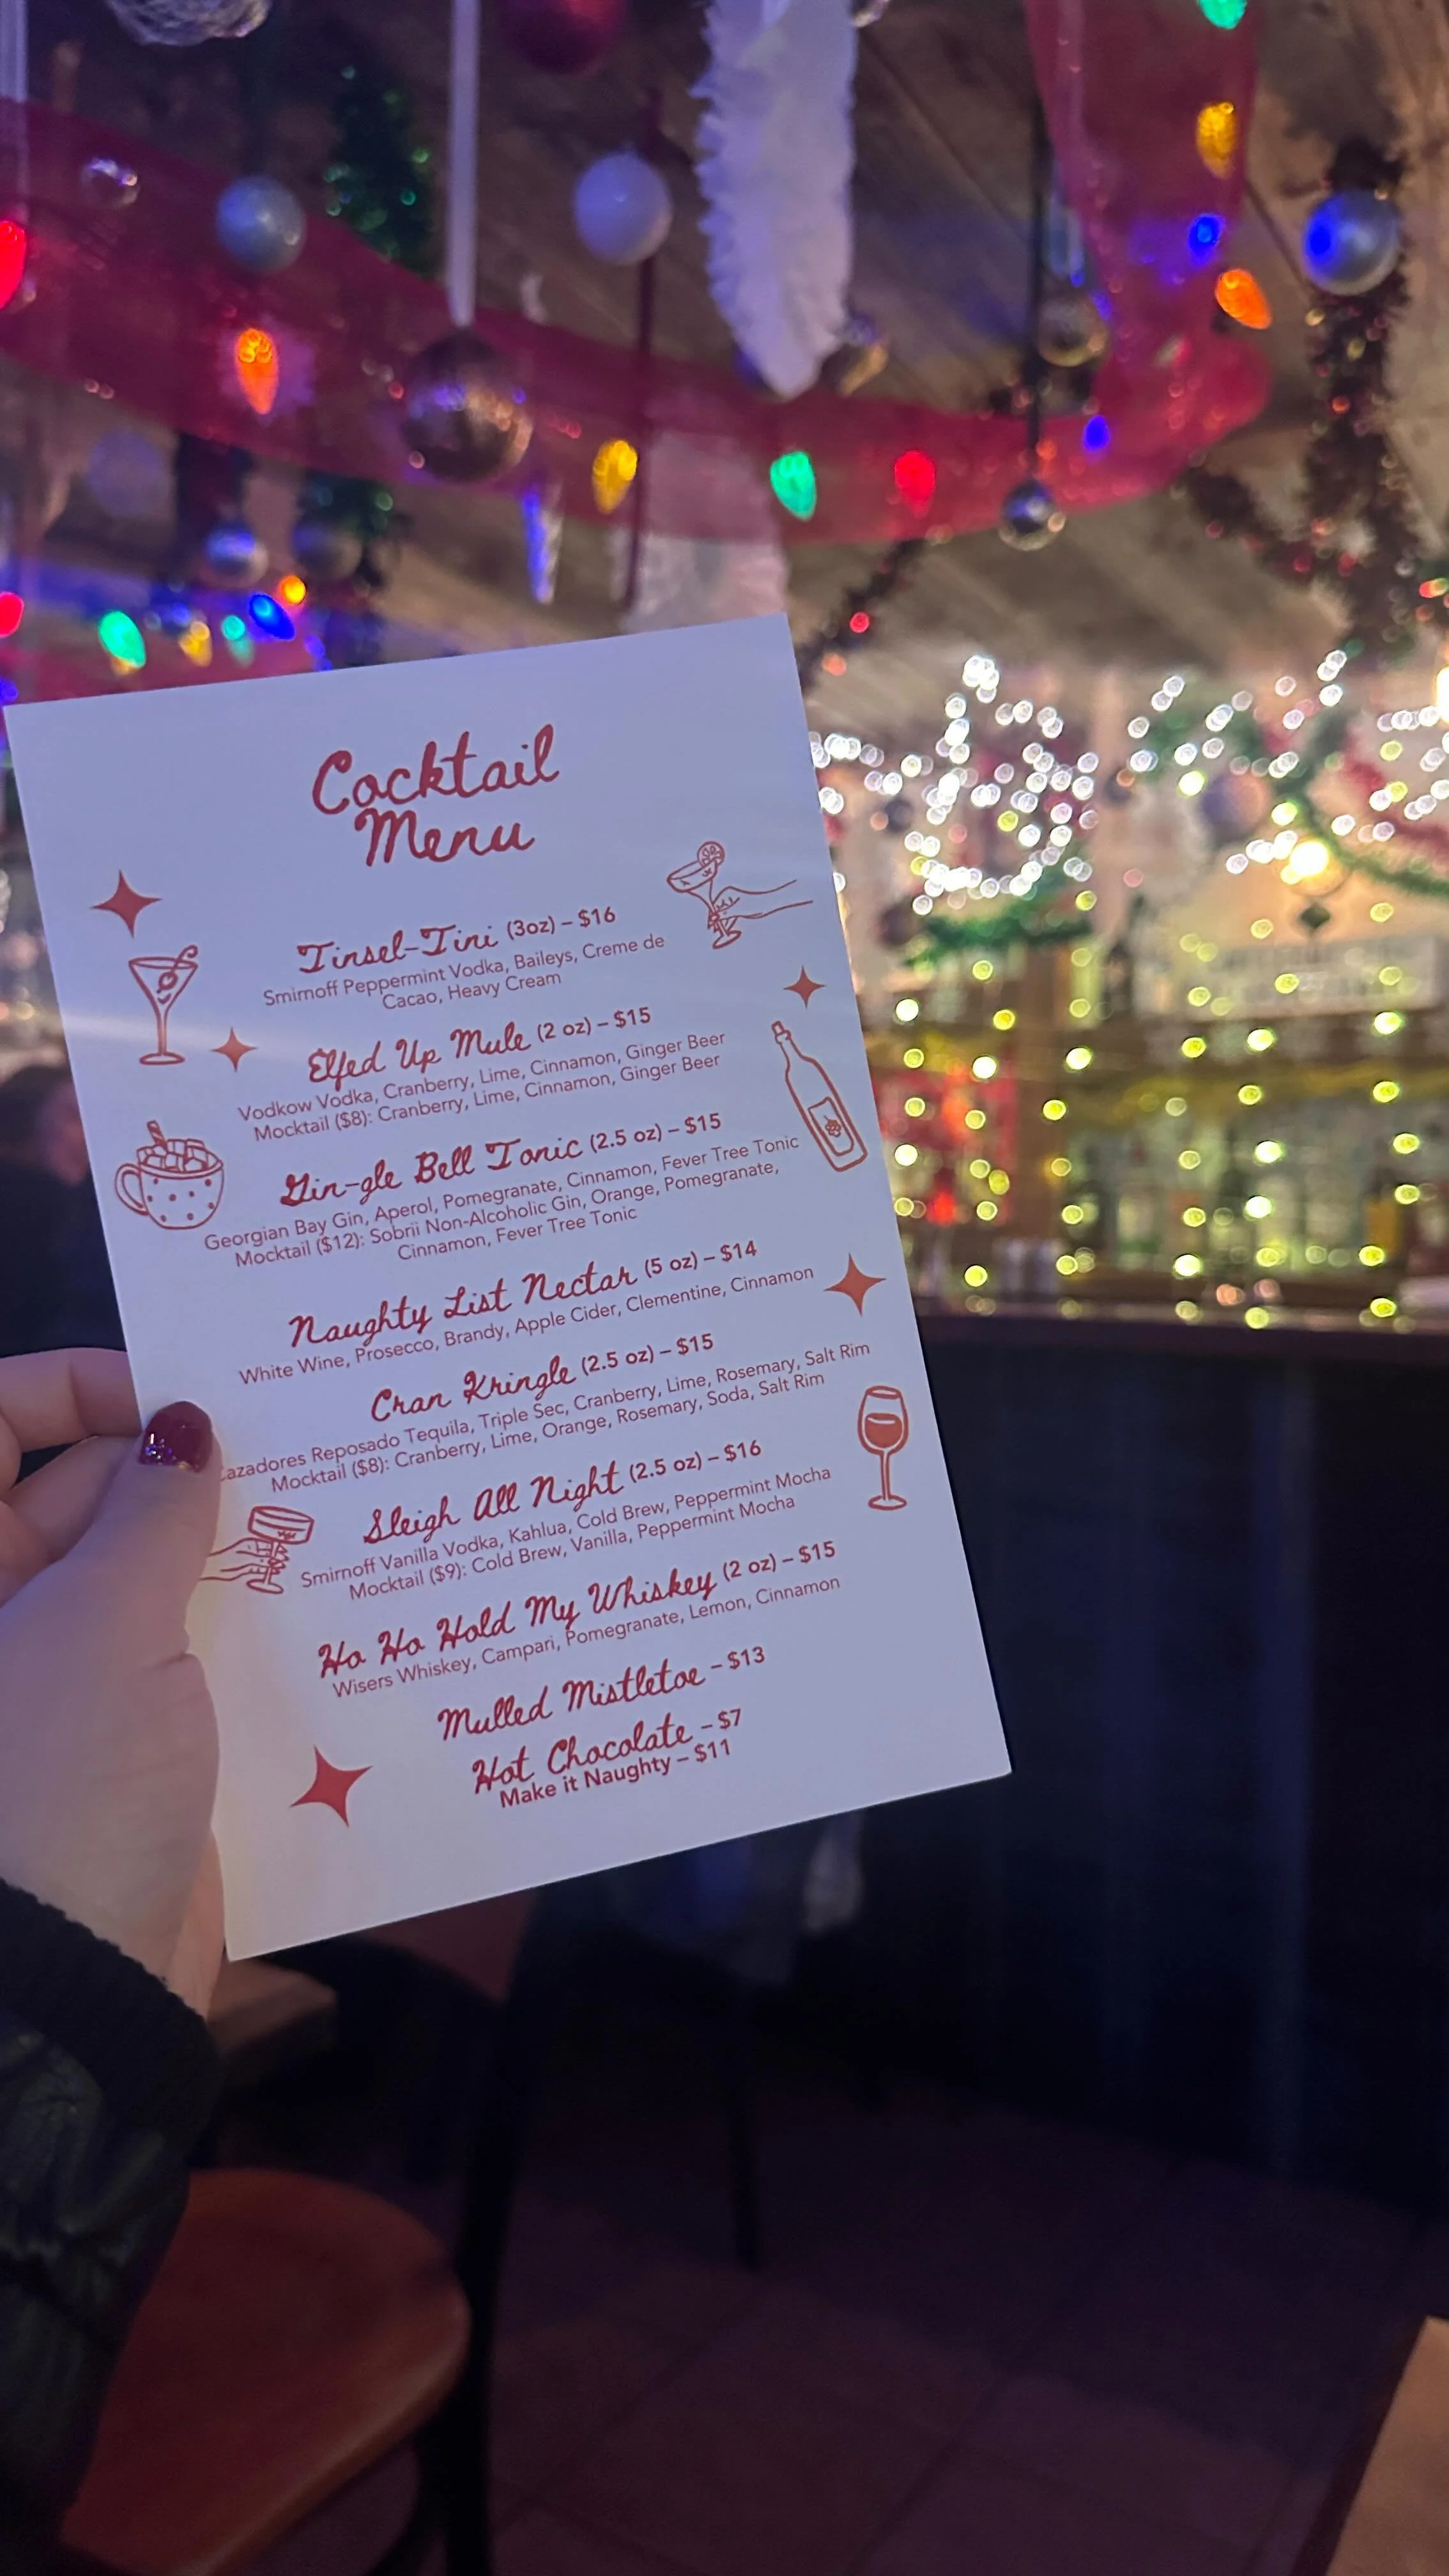 Cocktail
Menu
Tinsel-Tini (3oz) – $16
Smirnoff Peppermint Vodka, Baileys, Creme de
Cacao, Heavy Cream
Elfed Up Mule (2 oz) – $15
Vodkow Vodka, Cranberry, Lime, Cinnamon, Ginger Beer
Mocktail ($8): Cranberry, Lime, Cinnamon, Ginger Beer
Gin-gle Bell Tonic (2.5 oz) – $15
Georgian Bay Gin, Aperol, Pomegranate, Cinnamon, Fever Tree Tonic
Mocktail ($12): Sobrii Non-Alcoholic Gin, Orange, Pomegranate,
Cinnamon, Fever Tree Tonic
Naughty List Nectar (5 oz) – $14
White Wine, Prosecco, Brandy, Apple Cider, Clementine, Cinnamon
Cran Kringle (2.5 oz) – $15
azadores Reposado Tequila, Triple Sec, Cranberry, Lime, Rosemary, Salt Rim
Mocktail ($8): Cranberry, Lime, Orange, Rosemary, Soda, Salt Rim
Sleigh All Night (2.5 oz) – $16
Smirnoff Vanilla Vodka, Kahlua, Cold Brew, Peppermint Mocha
Mocktail ($9): Cold Brew, Vanilla, Peppermint Mocha
Ho Ho Hold My Whiskey (2 oz) – $15
Wisers Whiskey, Campari, Pomegranate, Lemon, Cinnamon
Mulled Mistletoe – $13
Hot Chocolate – $7
Make it Naughty – $11